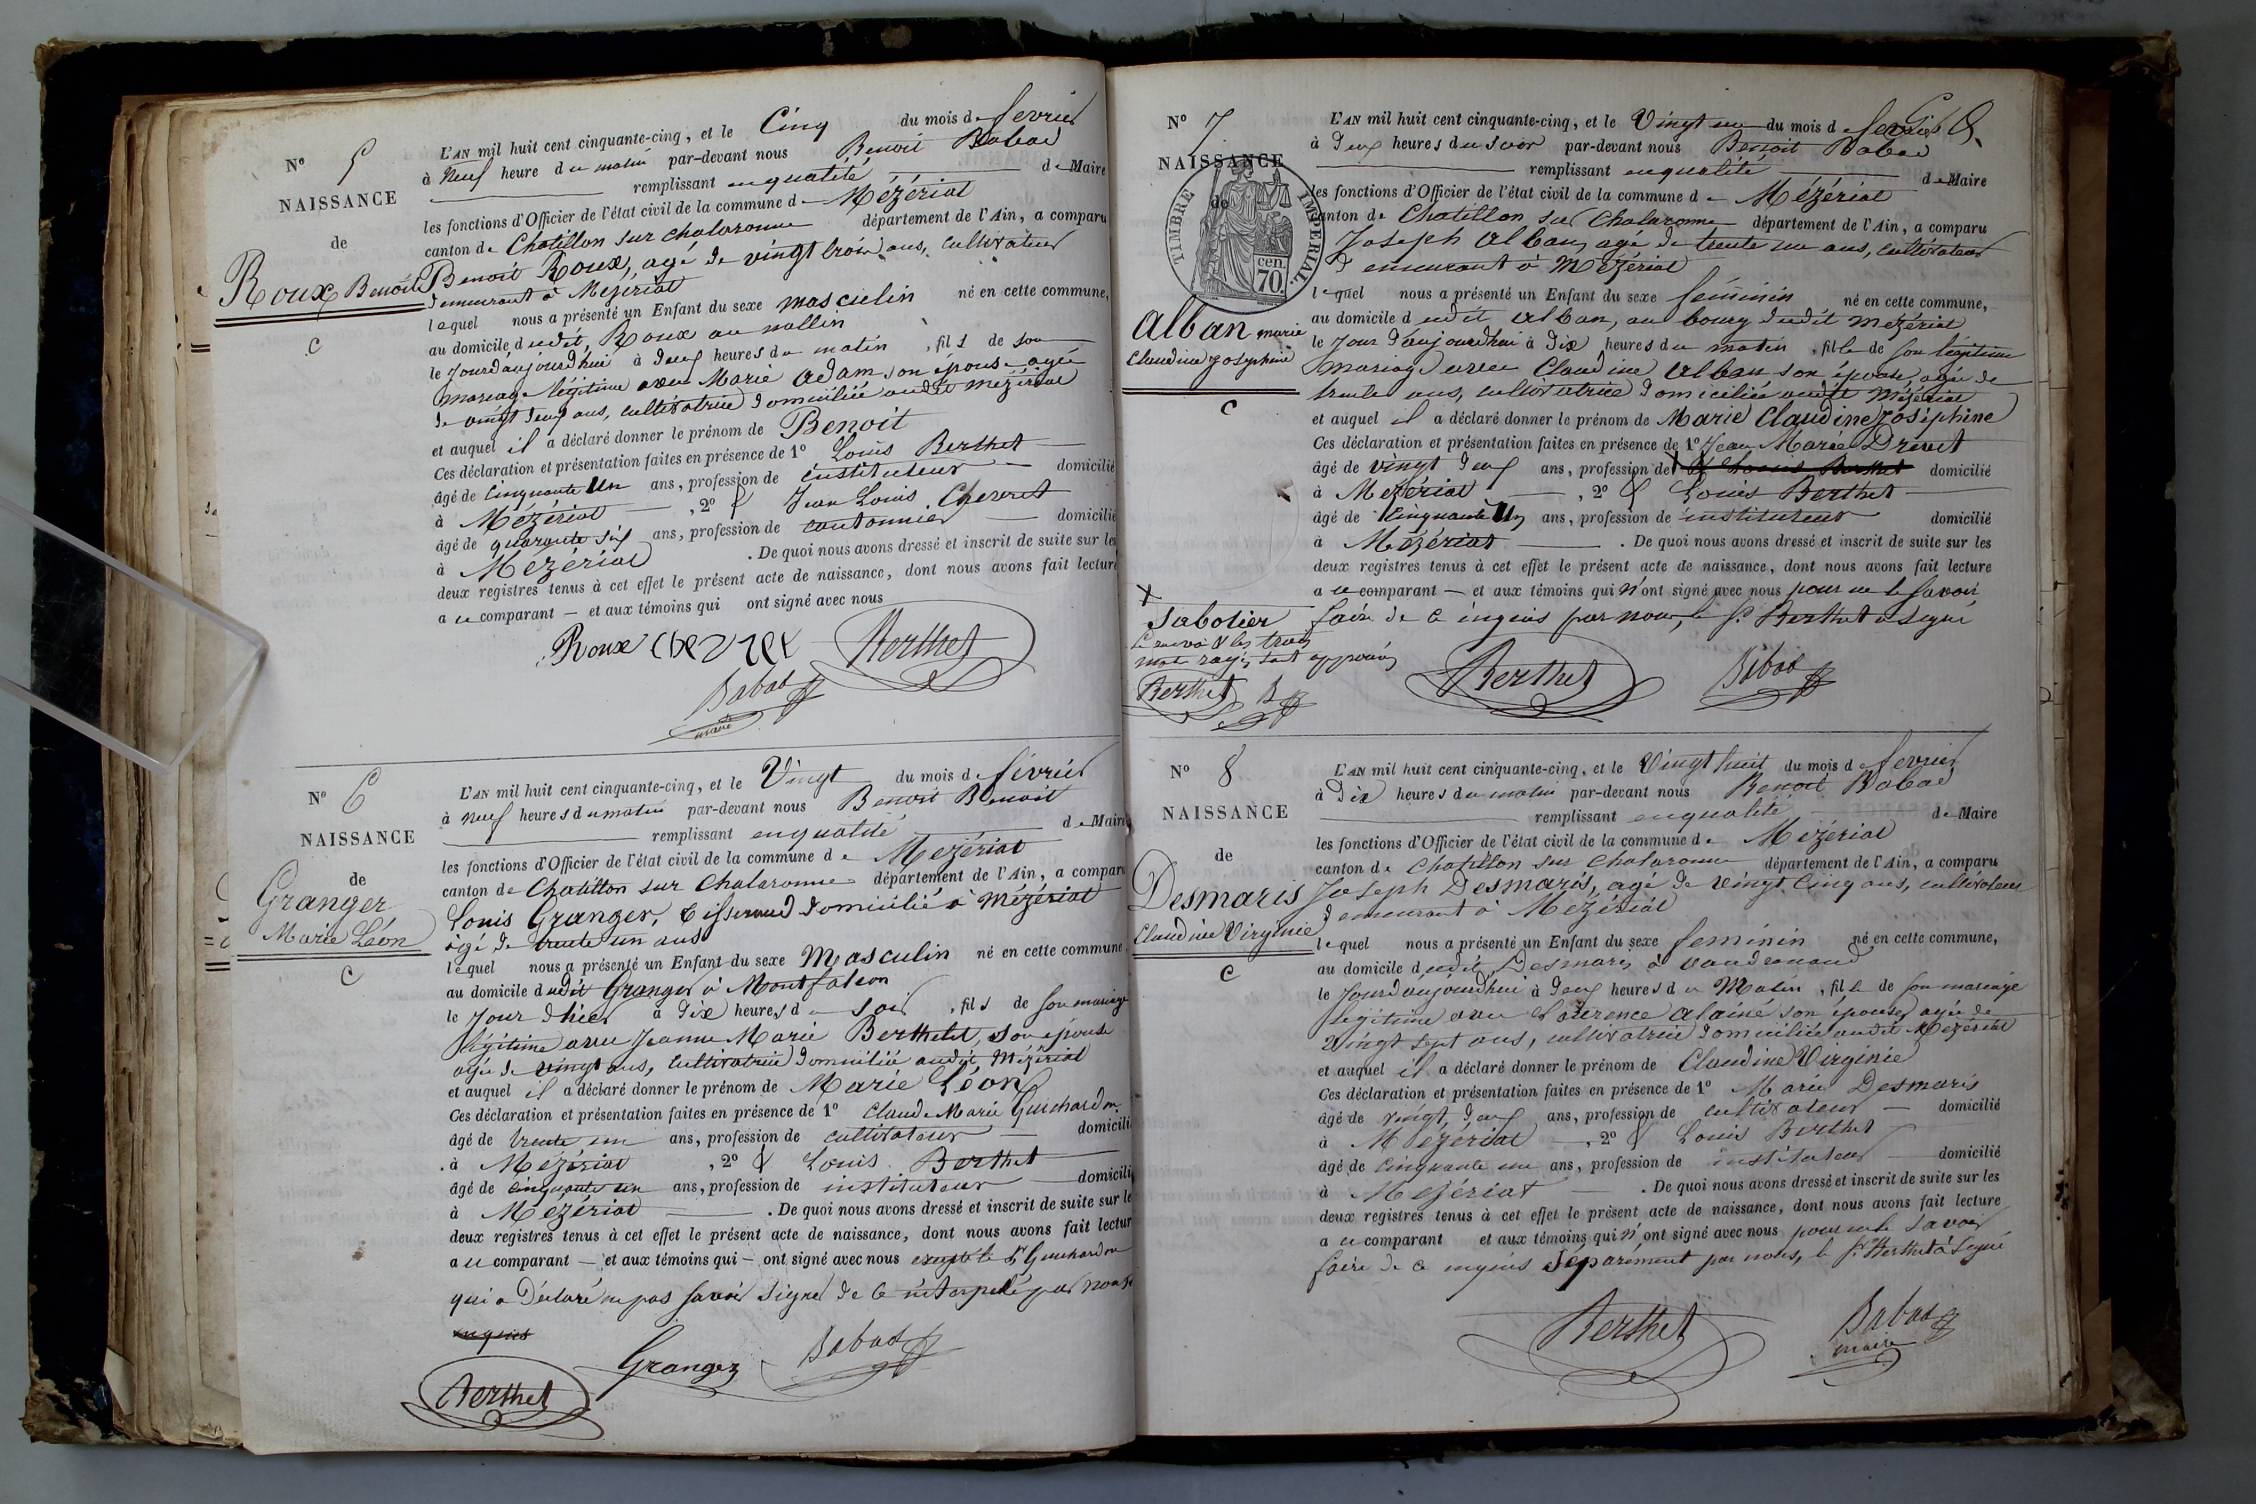 N° 5
NAISSANCE
de
Roux Benoit
C
L'AN mil huit cent cinquante-cinq, et le Cinq du mois de fevrier
à Neuf heure du matin par-devant nous Benoit Babad
remplissant en qualité de Maire
les fonctions d'Officier de l'état civil de la commune de Mézériat
canton de Chatillon sur chalaronne département de l'Ain, a comparu
Benoit Roux, agé de vingt trois ans, cultivateur
demeurant à Mézériat
lequel nous a présenté un Enfant du sexe masculin né en cette commune,
au domicile dudit, Roux au
le jourd'aujourd'hui à deux heures du matin, fils de son
mariage légitime avec Marie Adam son épouse agée
de vingt deux ans, cultivatrice domiciliée audit Mézériat
et auquel il a déclaré donner le prénom de Benoit
Ces déclaration et présentation faites en présence de 1° Louis Berthet
âgé de cinquante un ans, profession de instituteur domicilié
à Mézériat, 2° & Jean Louis Chevret
âgé de quarante six ans, profession de cantonnier domicilié
à Mézériat. De quoi nous avons dressé et inscrit de suite sur les
deux registres tenus à cet effet le présent acte de naissance, dont nous avons fait lecture
a ce comparant — et aux témoins qui ont signé avec nous
Roux Berthet
Babad
maire
N° 6
NAISSANCE
de
Granger
Marie Léon
C
L'AN mil huit cent cinquante-cinq, et le Vingt du mois de février
à neuf heures du matin par-devant nous Benoit Benoit
remplissant en qualité de Maire
les fonctions d'Officier de l'état civil de la commune de Mézériat
canton de Chatillon sur Chalaronne département de l'Ain, a comparu
Louis Granger, tisserand domicilié à Mézériat
agé de trente un ans
lequel nous a présenté un Enfant du sexe Masculin né en cette commune
au domicile dudit Granger à Montfalcon
le jour d'hier à dix heures du soir, fils de son mariage
légitime avec Jeanne Marie Berthelet, son épouse
agée de vingt ans, cultivatrice domiciliée audit Mézériat
et auquel il a déclaré donner le prénom de Marie Léon
Ces déclaration et présentation faites en présence de 1° Claude Marie Guichardon
âgé de trente un ans, profession de cultivateur domicilié
à Mézériat, 2° & Louis Berthet
âgé de cinquante un ans, profession de instituteur domicilié
à Mézériat. De quoi nous avons dressé et inscrit de suite sur le
deux registres tenus à cet effet le présent acte de naissance, dont nous avons fait lectur
a ce comparant — et aux témoins qui — ont signé avec nous excepté le Sr Guichardon
qui a Déclaré ne pas savoir signer de ce interpelé par nous
enquis
Granger Babad
Berthet
N° 7
NAISSANCE
de
TIMBRE IMPERIAL
70 cen.
Alban marie
Claudine Joséphine
C
L'AN mil huit cent cinquante-cinq, et le Vingt un du mois de fevrier
à deux heures du soir par-devant nous Benoit Babad
remplissant en qualité de Maire
les fonctions d'Officier de l'état civil de la commune de Mézériat
canton de Chatillon sur Chalaronne département de l'Ain, a comparu
Joseph Alban, agé de trente un ans, cultivateur
demeurant à Mézériat
lequel nous a présenté un Enfant du sexe féminin né en cette commune,
au domicile dudit Alban, au bourg dudit Mézériat
le Jour d'aujourd'hui à dix heures du matin, fille de son légitime
mariage avec Claudine Alban son épouse agée de
trente ans, cultivatrice domiciliée audit Mézériat
et auquel il a déclaré donner le prénom de Marie Claudine Joséphine
Ces déclaration et présentation faites en présence de 1° Jean Marie Drevet
âgé de vingt deux ans, profession de X & Louis Berthet domicilié
à Mézériat, 2° & Louis Berthet
âgé de cinquante un ans, profession de instituteur domicilié
à Mézériat. De quoi nous avons dressé et inscrit de suite sur les
deux registres tenus à cet effet le présent acte de naissance, dont nous avons fait lecture
a ce comparant — et aux témoins qui n'ont signé avec nous pour ne le savoir
faire de ce enquis par nous, le Sr Berthet a signé
X
Sabotier
Le renvoi & les trois
mots rayés sont approuvés
Berthet B
Berthet Babad
N° 8
NAISSANCE
de
Desmaris
Claudine Virginie
C
L'AN mil huit cent cinquante-cinq, et le Vingt huit du mois de fevrier
à Dix heures du matin par-devant nous Benoit Babad
remplissant en qualité de Maire
les fonctions d'Officier de l'état civil de la commune de Mézériat
canton de Chatillon sur Chalaronne département de l'Ain, a comparu
Joseph Desmaris, agé de vingt cinq ans, cultivateur
demeurant à Mézériat
lequel nous a présenté un Enfant du sexe féminin né en cette commune,
au domicile dudit, Desmaris à
le Jourd'aujourd'hui à deux heures du Matin, fille de son mariage
légitime avec son épouse, agée de
vingt sept ans, cultivatrice domiciliée audit Mézériat
et auquel il a déclaré donner le prénom de Claudine Virginie
Ces déclaration et présentation faites en présence de 1° Marie Desmaris
âgé de vingt deux ans, profession de cultivateur — domicilié
à Mézériat, 2° & Louis Berthet
âgé de cinquante un ans, profession de instituteur domicilié
à Mézériat. De quoi nous avons dressé et inscrit de suite sur les
deux registres tenus à cet effet le présent acte de naissance, dont nous avons fait lecture
a ce comparant et aux témoins qui n'ont signé avec nous pour ne le savoir
faire de ce enquis séparément par nous, le Sr Berthet a signé
Berthet Babad
maire